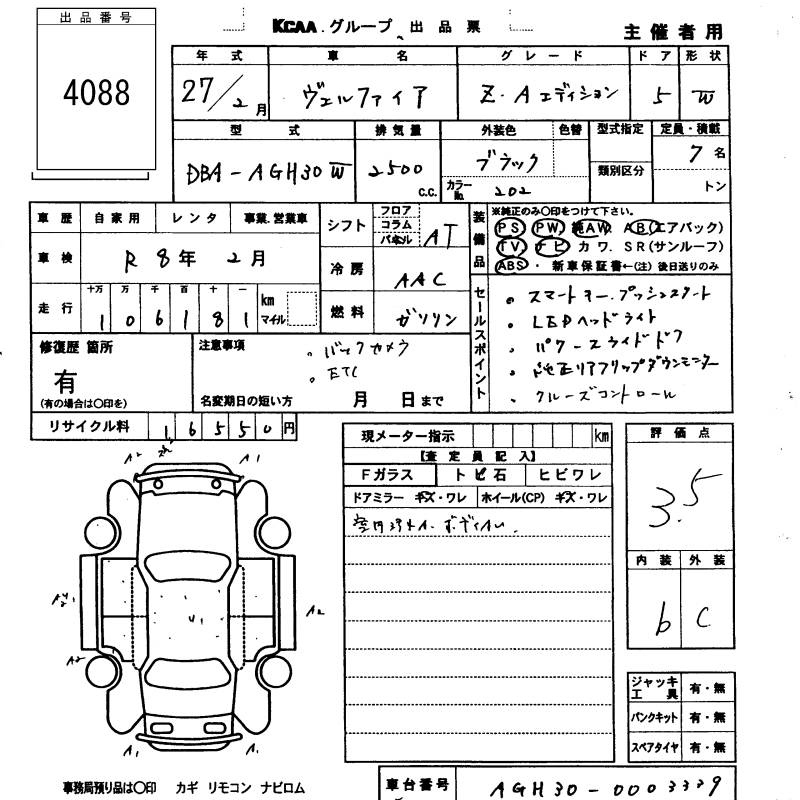 出品番号
4088
KCAA.グループ 出品票
主催者用
年式 車名 グレード ドア 形状
27/2月 ヴェルファイア Z.Aエディション 5 W
型式 排気量 外装色 色替 型式指定 定員・積載
DBA-AGH30W 2500 c.c. ブラック 類別区分 7名
カラーNo. 202 トン
車歴 自家用 レンタ 事業.営業車
車検 R 8年 2月
走行 十万 万 千 百 十 一 km マイル
1 0 6 1 8 1
シフト フロア コラム パネル AT
冷房 AAC
燃料 ガソリン
装備品
※純正のみ○印をつけて下さい。
PS PW 純AW AB(エアバック)
TV ナビ カワ. SR(サンルーフ)
ABS・ 新車保証書←(注)後日送りのみ
セールスポイント
・スマートキー.プッシュスタート
・LEDヘッドライト
・パワースライドドア
・純正リアフリップダウンモニター
・クルーズコントロール
修復歴 箇所
有
(有の場合は○印を)
注意事項
・バックカメラ
・ETC
名変期日の短い方 月 日まで
リサイクル料 16550円
A2 A1
A2
U1
A2
A2
A1 A1
現メーター指示 km
【査定員記入】
Fガラス トビ石 ヒビワレ
ドアミラー キズ・ワレ ホイール(CP) キズ・ワレ
評価点
3.5
内装 外装
b C
ジャッキ工具 有・無
パンクキット 有・無
スペアタイヤ 有・無
事務局預り品は○印 カギ リモコン ナビロム
車台番号 AGH30-0003339